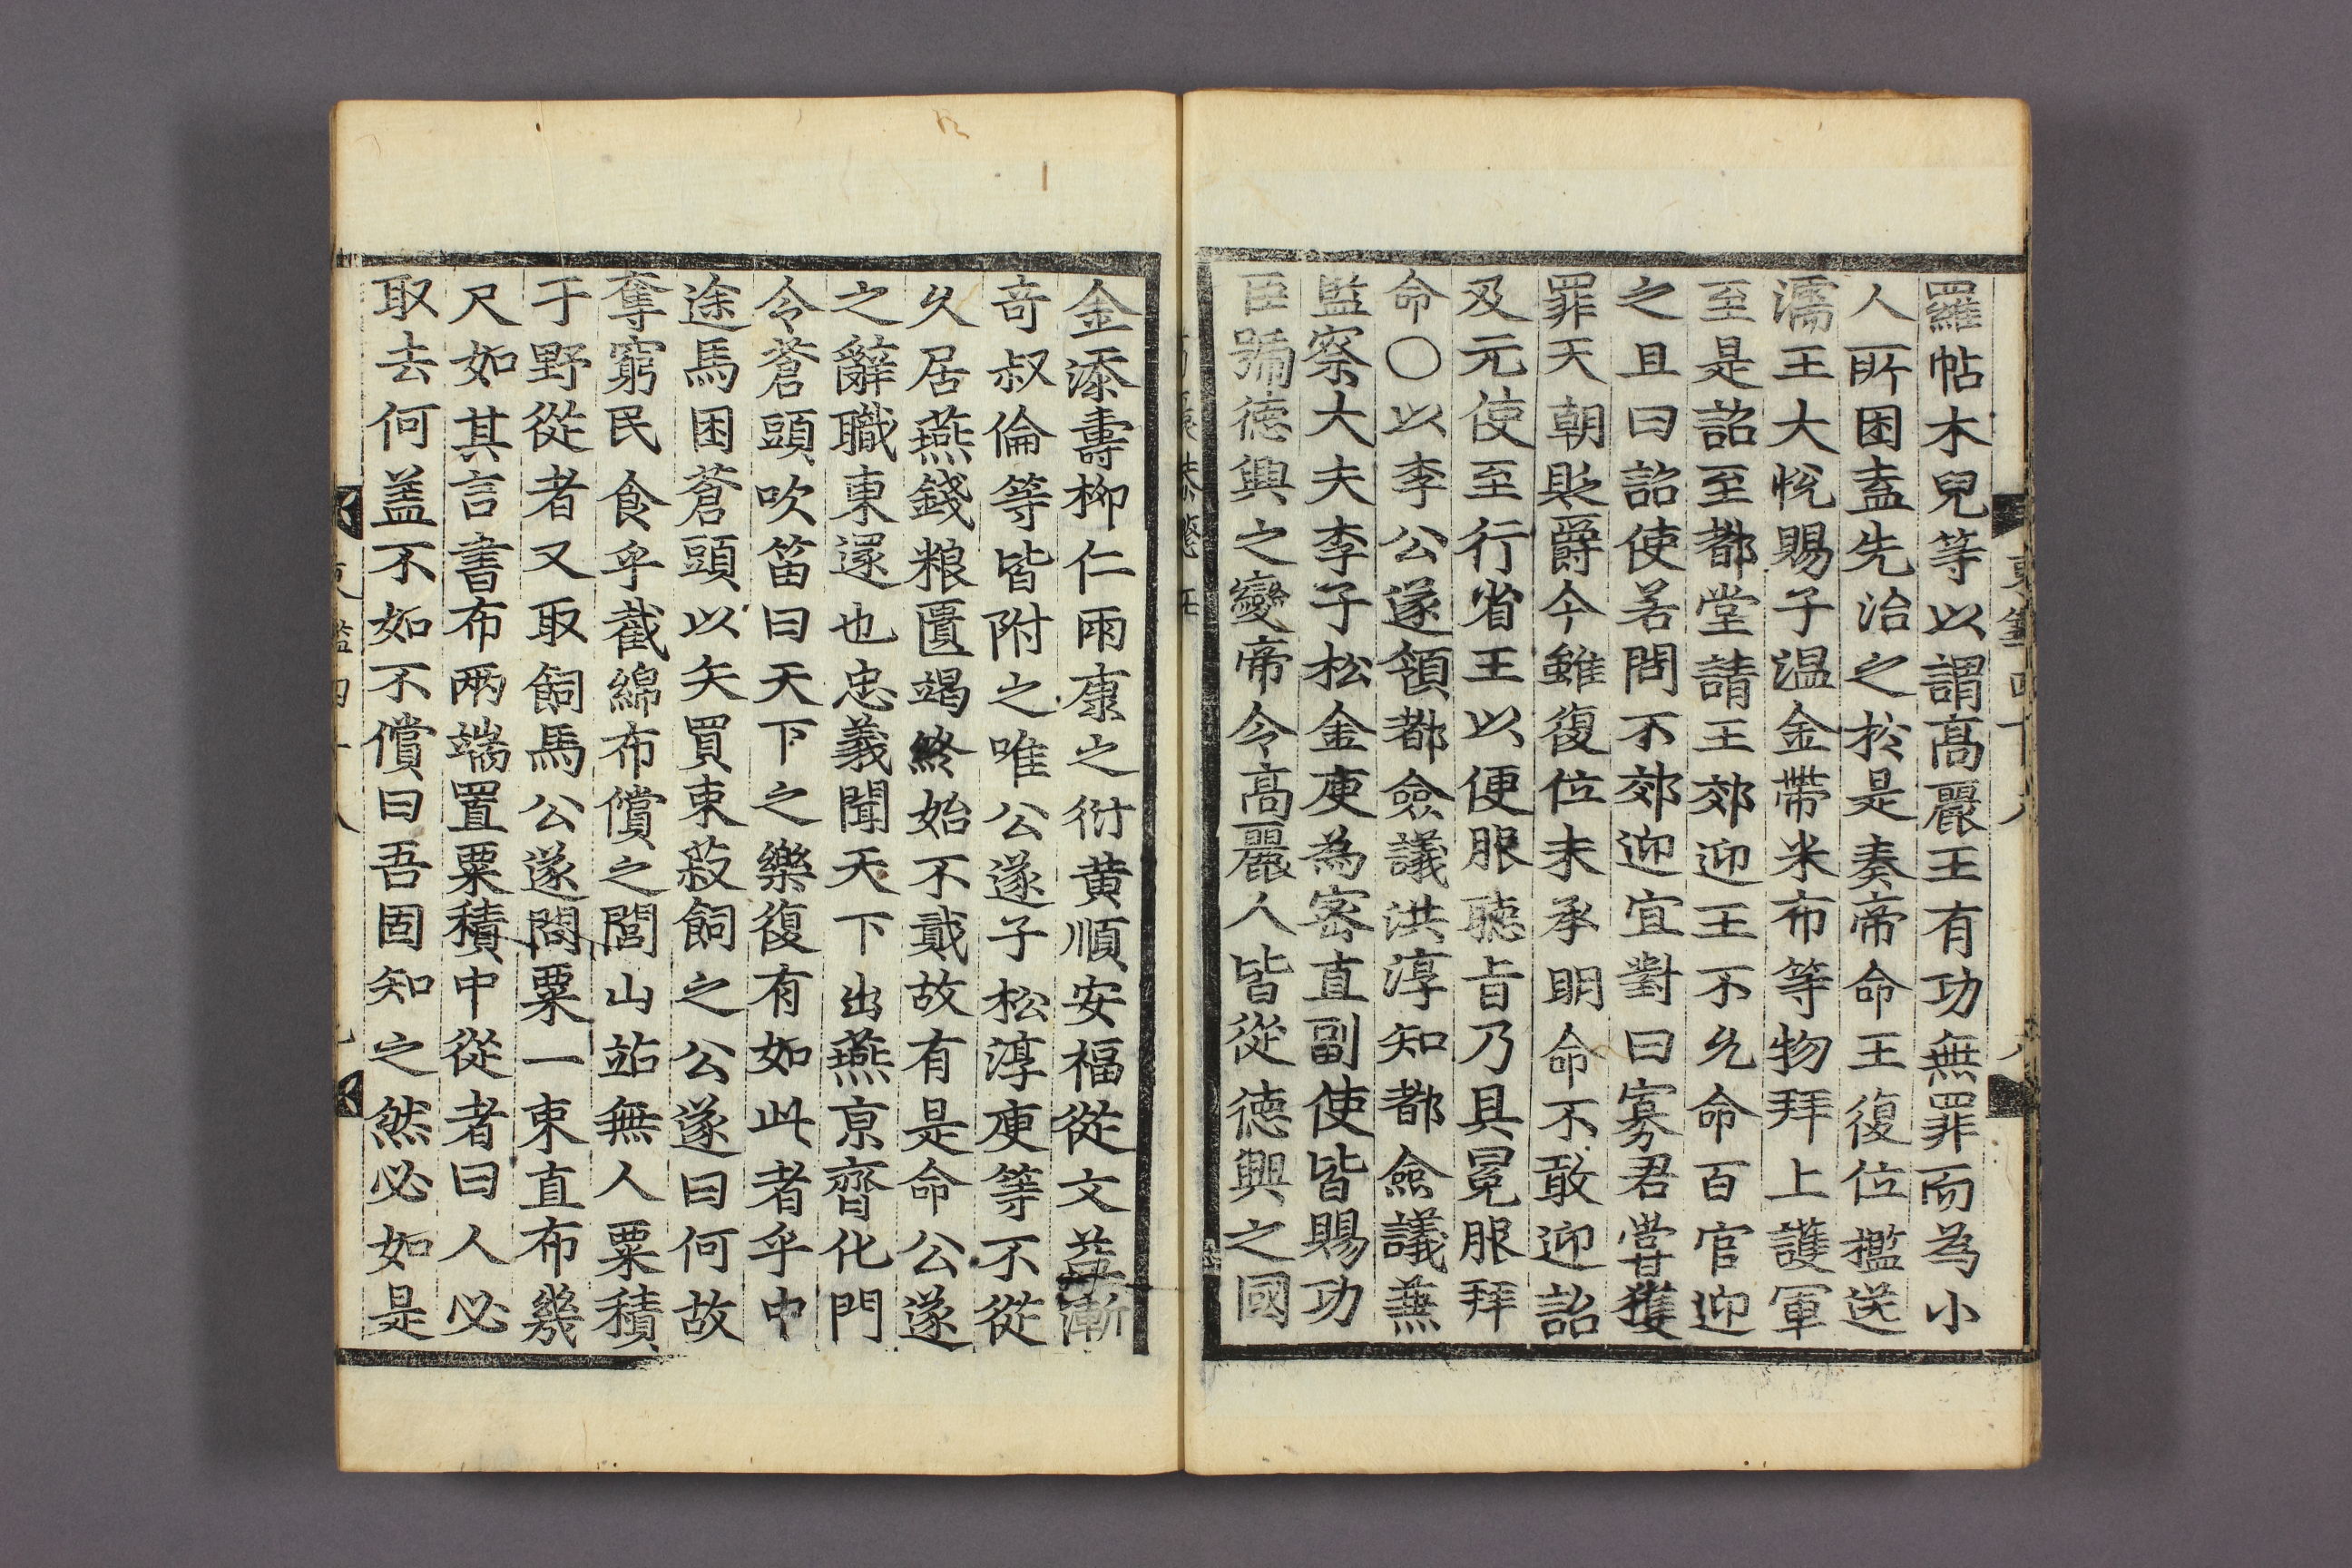 羅帖木兒等以謂髙麗王有功無罪而為小
人所困盍先治之於是奏帝命王復位檻送
濡王大悅賜子温金帶米布等物拜上護軍
至是詔至都堂請王郊迎王不允命百官迎
之且曰詔使若問不郊迎宜對曰寡君嘗獲
罪天朝貶爵今雖復位未承明命不敢迎詔
及元使至行省王以便服聽旨乃具冕服拜
命○以李公遂領都僉議洪淳知都僉議兼
監察大夫李子松金庾為密直副使皆賜功
臣號德興之變帝令髙麗人皆從德興之國
金添壽柳仁雨康之衍黄順安福從文益漸
竒叔倫等皆附之唯公遂子松淳庾等不從
久居燕錢粮匱竭終始不貳故有是命公遂
之辭職東還也忠義聞天下出燕京齊化門
令蒼頭吹笛曰天下之樂復有如此者乎中
途馬困蒼頭以矢買束菽飼之公遂曰何故
奪窮民食乎截綿布償之閭山站無人粟積
于野從者又取飼馬公遂問粟一束直布幾
尺如其言書布兩端置粟積中從者曰人必
取去何益不如不償曰吾固知之然必如是